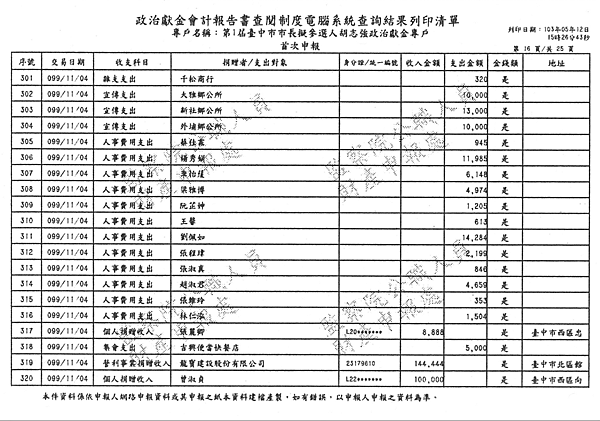 政治獻金會計報告書查閱制度電腦系統查詢結果列印清單
專戶名稱：第1屆臺中市市長擬參選人胡志強政治獻金專戶
首次申報
列印日期：103年05年12日
15時26分43秒
第 16 頁/共 25 頁
序號 交易日期 收支科目 捐贈者/支出對象 身分證/統一編號 收入金額 支出金額 金錢類 地址
301 099/11/04 雜支支出 千松商行 320 是
302 099/11/04 宣傳支出 大雅鄉公所 10,000 是
303 099/11/04 宣傳支出 新社鄉公所 13,000 是
304 099/11/04 宣傳支出 外埔鄉公所 10,000 是
305 099/11/04 人事費用支出 蔡仕 945 是
306 099/11/04 人事費用支出 楊秀娟 11,985 是
307 099/11/04 人事費用支出 6,148 是
308 099/11/04 人事費用支出 梁雅博 4,974 是
309 099/11/04 人事費用支出 阮芷婷 1,205 是
310 099/11/04 人事費用支出 王馨 613 是
311 099/11/04 人事費用支出 劉佩如 14,284 是
312 099/11/04 人事費用支出 張程瑋 2,199 是
313 099/11/04 人事費用支出 張淑真 846 是
314 099/11/04 人事費用支出 趙淑君 4,659 是
315 099/11/04 人事費用支出 張維玲 353 是
316 099/11/04 人事費用支出 林仁泓 1,504 是
317 099/11/04 個人捐贈收入 張麗卿 L20******* 8,888 是 臺中市西區忠
318 099/11/04 集會支出 吉興便當快餐店 5,000 是
319 099/11/04 營利事業捐贈收入 龍寶建設股份有限公司 23179610 144,444 是 臺中市北區館
320 099/11/04 個人捐贈收入 曾淑貞 L22******* 100,000 是 臺中市西區向
本件資料係依申報人網路申報資料或其申報之紙本資料建檔產製，如有錯誤，以申報人申報之資料為準。
監察院公職人員
財產申報處
監察院公職人員
財產申報處
監察院公職人員
財產申報處
監察院公職人員
財產申報處